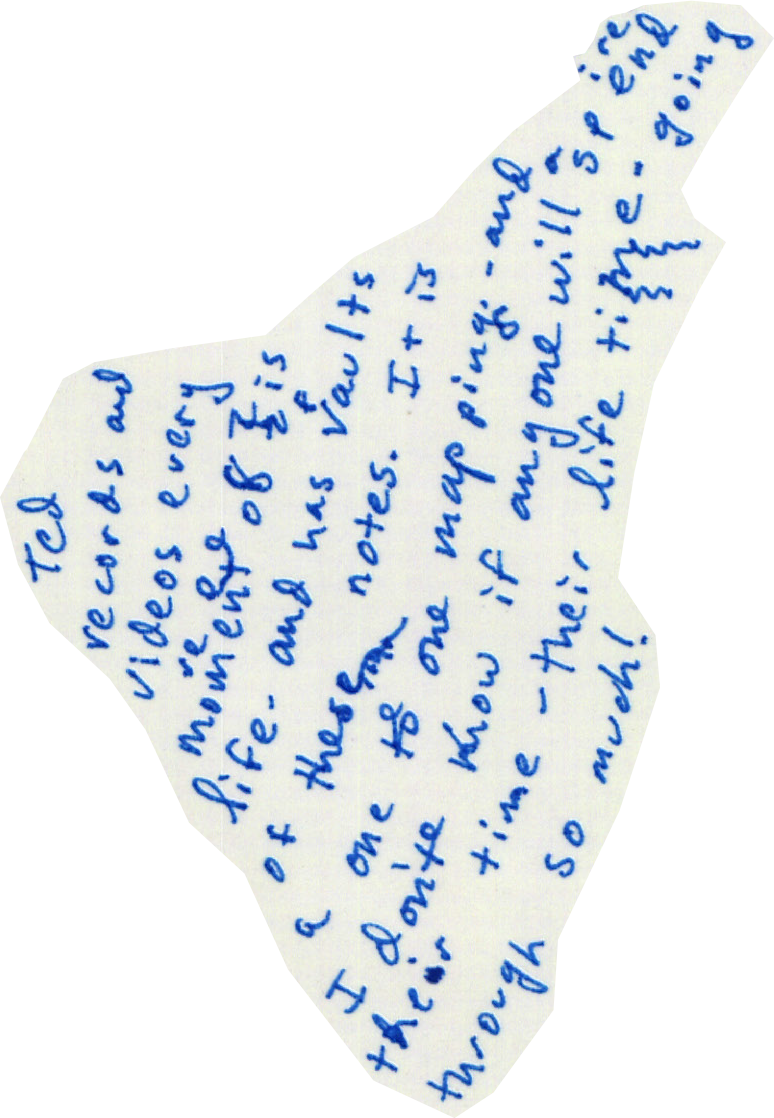 Ted
records and
videos every
moment of his
life - and has vaults
of these notes. It is
a one to one mapping - and
I donit know if anyone will spend
their time - their life time - going
through so much!